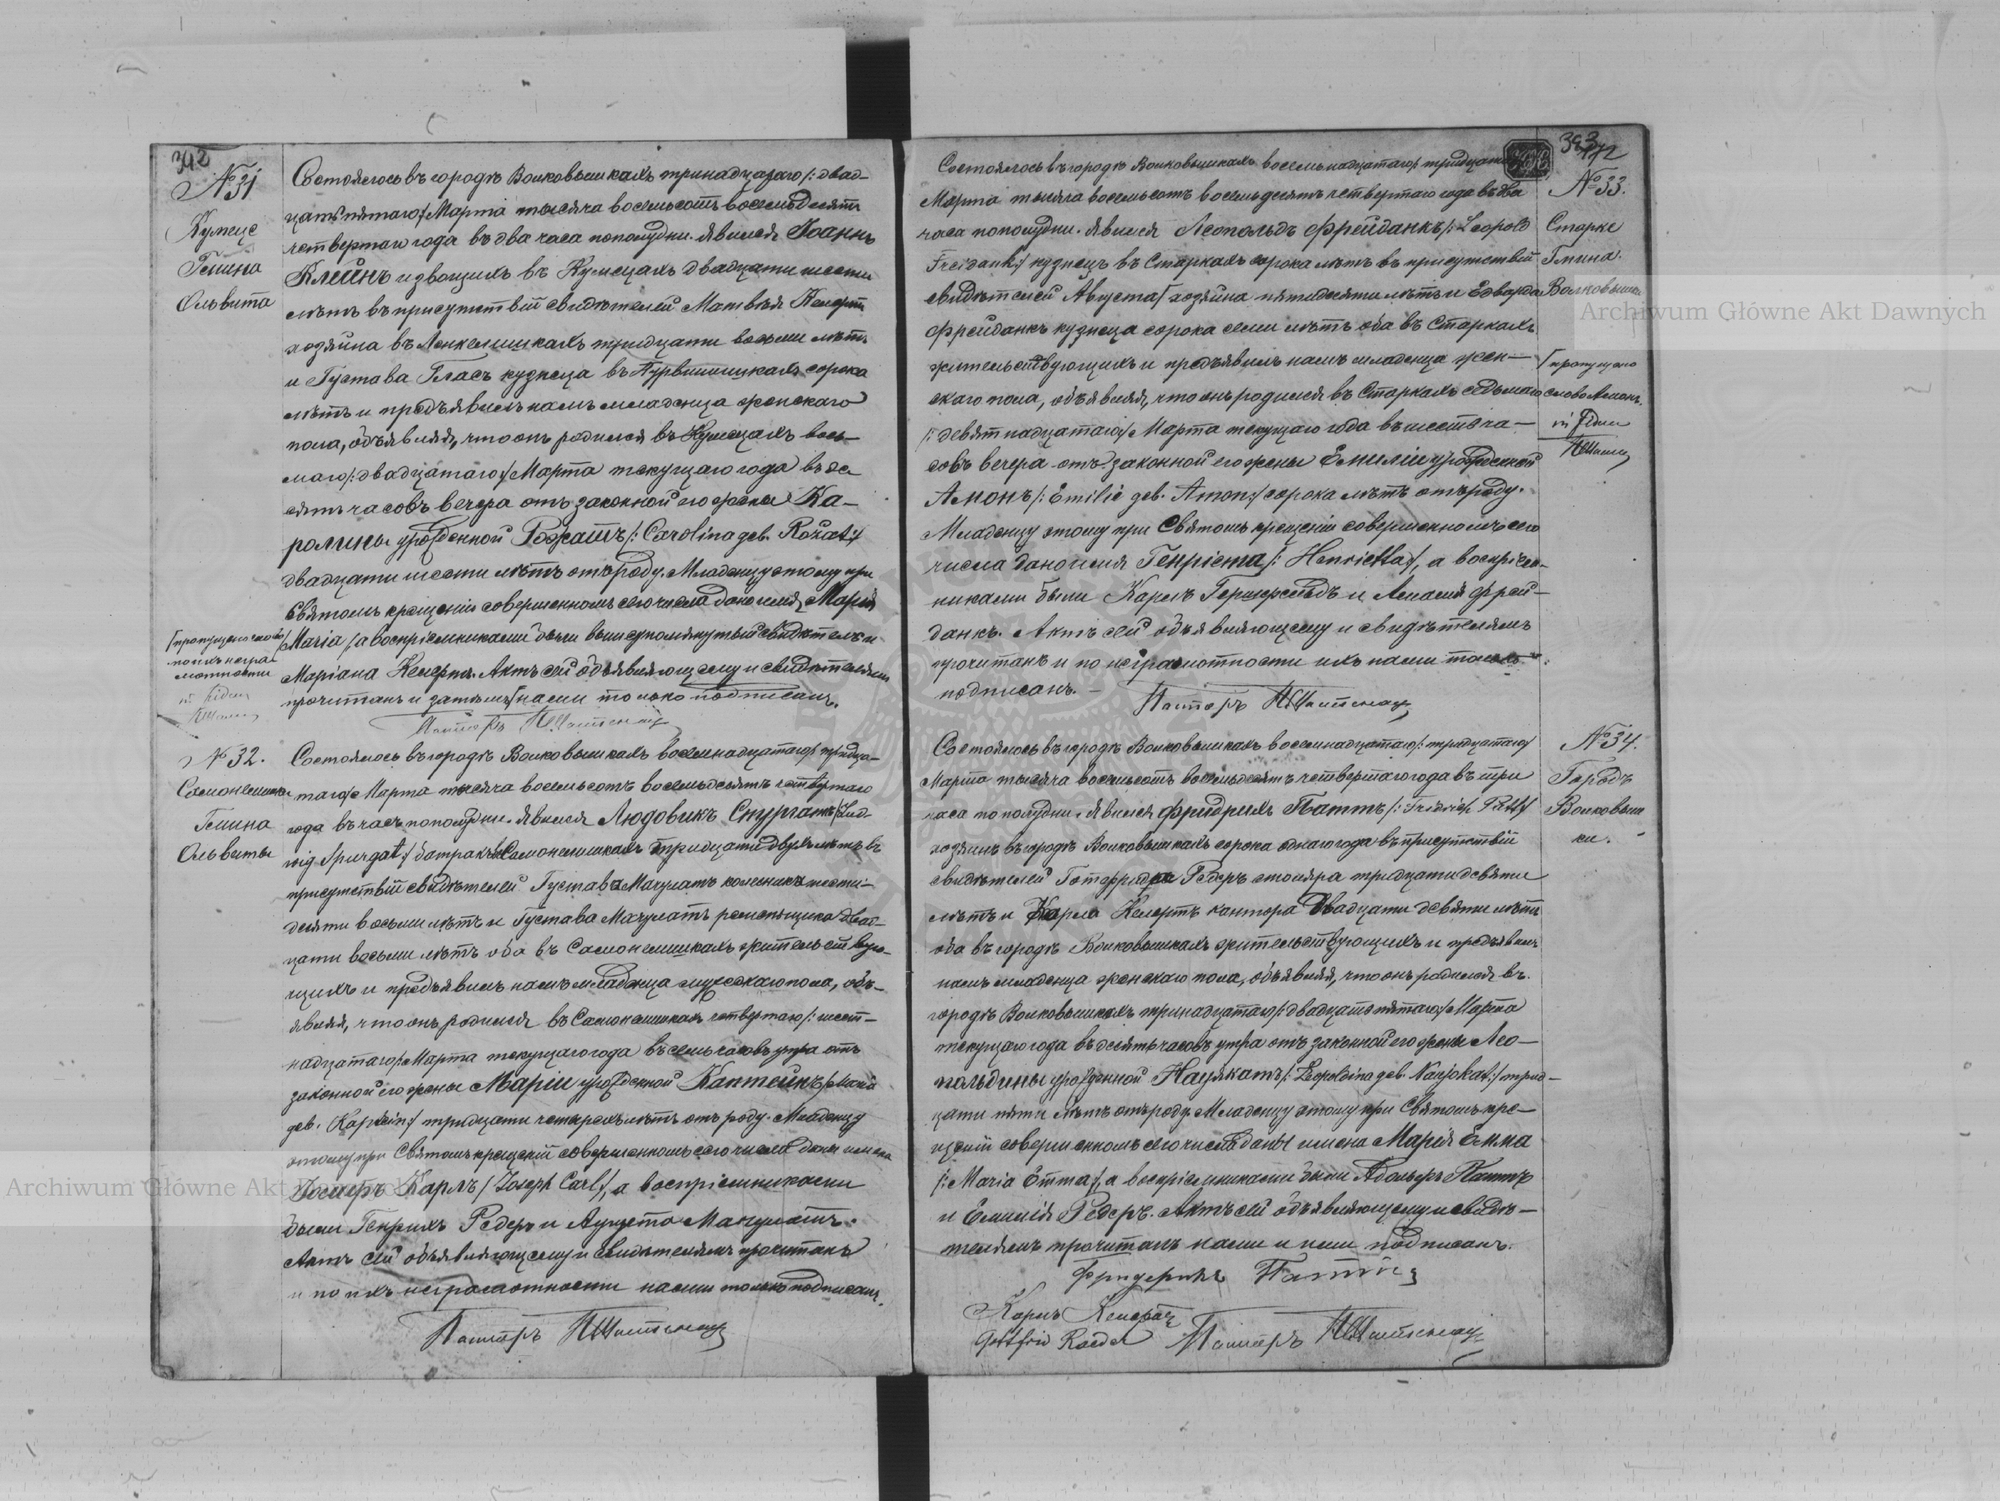 342
№ 31
Кумеце
Гмина
Ольвита
Состоялось въ городѣ Волковышкахъ тринадцатаго /: двад-
цать пятаго :/ Марта тысяча восемьсотъ восемьдесятъ
четвертаго года въ два часа пополудни. Явился Іоаннъ
Клейнъ извощикъ въ Кумецахъ двадцати шести
лѣтъ въ присутствіи свидѣтелей Матвѣя Келерта
хозяина въ тридцати восьми лѣтъ
и Густава Гласъ кузнеца въ сорока
лѣтъ и предъявилъ намъ младенца женскаго
пола, объявляя, что онъ родился въ Кумецахъ вось-
маго /: двадцатаго :/ Марта текущаго года въ де
сять часовъ вечера отъ законной его жены Ка-
ролины урожденной Рожатъ /: Carolina geb. Rožat :/
двадцати шести лѣтъ отъ роду. Младенцу этому при
Святомъ крещеніи совершенномъ сего числа дано имя Марія
/ Maria /, а воспріемниками были вышеупомянутый свидѣтель и
Маріана Келерта. Актъ сей объявляющему и свидѣтелямъ
прочитанъ и затѣмъ / нами только подписанъ.
/ пропущено слово
по ихъ негра-
мотности
in fidem
Пасторъ
№ 32.
Гмина
Ольвиты
Состоялось въ городѣ Волковышкахъ восемнадцатаго /: тридца-
таго :/ Марта тысяча восемьсотъ восемьдесятъ четвертаго
года въ часъ пополудни. Явился Людовикъ Спургатъ /: Lud-
wig Spurgat :/ батракъ въ тридцати двухъ лѣтъ въ
присутствіи свидѣтелей Густавъ Мачулатъ колесникъ шести-
десяти восьми лѣтъ и Густава Мачулатъ двад-
цати восьми лѣтъ оба въ жительствую-
щихъ и предъявилъ намъ младенца мужескаго пола, объ-
являя, что онъ родился въ четвертаго /: шест-
надцатаго :/ Марта текущаго года въ семь часовъ утра отъ
законной его жены Маріи урожденной Каптейнъ /: Maria
geb. Kaptein :/ тридцати четырехъ лѣтъ отъ роду. Младенцу
этому при Святомъ крещеніи совершенномъ сего числа даны имена
Іосифъ Карлъ / Joseph Carl /, а воспріемниками
были Генрихъ Редеръ и Августа Мачулатъ.
Актъ сей объявляющему и свидѣтелямъ прочитанъ
и по ихъ неграмотности нами только подписанъ.
Пасторъ
Состоялось въ городѣ Волковышкахъ восемьнадцатаго /: тридцатаго
Марта тысяча восемьсотъ восемьдесятъ четвертаго года въ два
часа пополудни. Явился Леопольдъ Фрейданкъ /: Leopold
Freidank :/ кузнецъ въ Старкахъ сорока лѣтъ въ присутствіи
свидѣтелей Августа / хозяина пятидесяти лѣтъ и Эдварда
Фрейданкъ кузнеца сорока семи лѣтъ оба въ Старкахъ
жительствующихъ и предъявилъ намъ младенца жен-
скаго пола, объявляя, что онъ родился въ Старкахъ седьмаго
/: девятнадцатаго :/ Марта текущаго года въ шесть ча-
совъ вечера отъ законной его жены Емиліи урожденной
Амонъ /: Emilie geb. Amon :/ сорока лѣтъ отъ роду.
Младенцу этому при Святомъ крещеніи совершенномъ сего
числа дано имя Генріета /: Henrietta :/, а воспріем-
никами были Карлъ и Амалія Фрей-
данкъ. Актъ сей объявляющему и свидѣтелямъ
прочитанъ и по неграмотности ихъ нами только
подписанъ.
Пасторъ
№ 33.
Старке
Гмина
Волковышки
/ пропущено
слово Амонъ.
in fidem
Состоялось въ городѣ Волковышкахъ восемнадцатаго /: тридцатаго /
Марта тысяча восемьсотъ восемьдесятъ четвертаго года въ три
часа пополудни. Явился Фридрихъ Паттъ /: Friedrich Patt :/
хозяинъ въ городѣ Волковышкахъ сорока одного года въ присутствіи
свидѣтелей Готфрида Редеръ столяра тридцати девяти
лѣтъ и Карла Келертъ кантора двадцати девяти лѣтъ
оба въ городѣ Волковышкахъ жительствующихъ и предъявилъ
намъ младенца женскаго пола, объявляя, что онъ родился въ
городѣ Волковышкахъ тринадцатаго /: двадцать пятаго :/ Марта
текущаго года въ десять часовъ утра отъ законной его жены Лео-
польдины урожденной Наујокатъ /: Leopoldina geb. Naujokat :/ трид-
цати пяти лѣтъ отъ роду. Младенцу этому при Святомъ кре-
щеніи совершенномъ сего числа даны имена Марія Емма
/: Maria Emma /, а воспріемниками были Адольфъ Паттъ
и Емилія Редеръ. Актъ сей объявляющему и свидѣ-
телямъ прочитанъ нами и ими подписанъ.
Фридерихъ Паттъ
Карлъ Келертъ
Gottfrid Roeder Пасторъ
№ 34.
Городъ
Волковыш
ки.
Archiwum Główne Akt Dawnych
Archiwum Główne Akt Dawnych